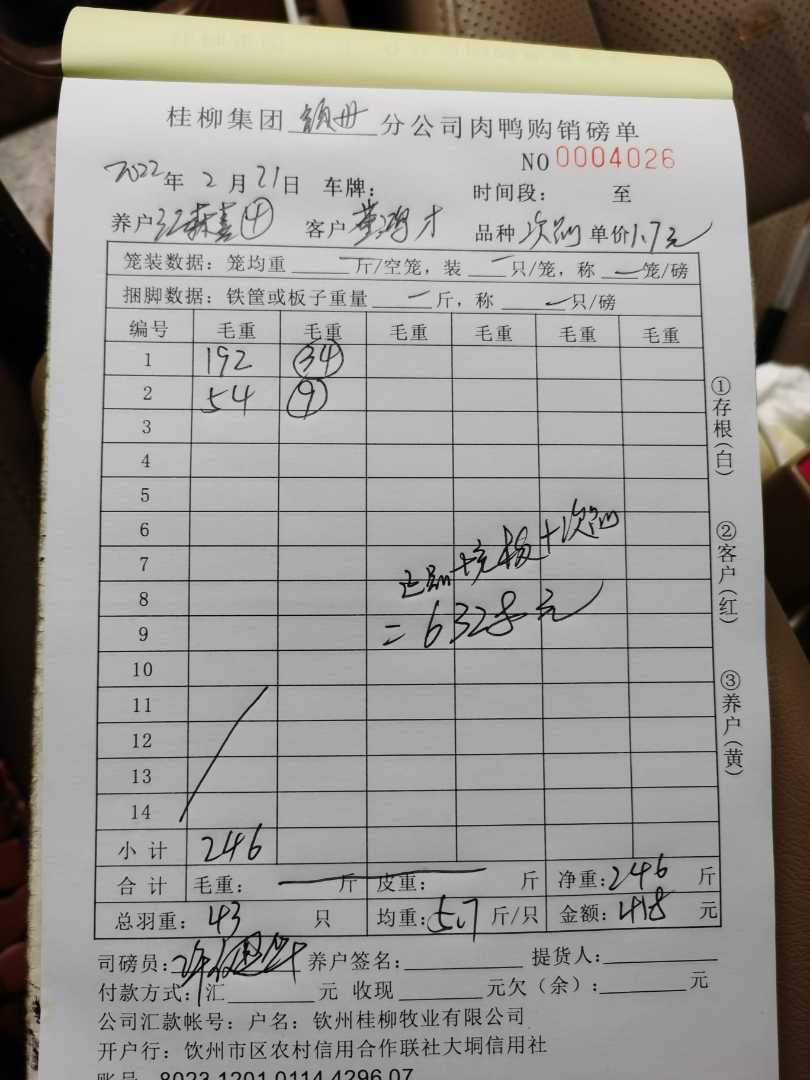 桂柳集团 钦州 分公司肉鸭购销磅单
NO 0004026
2022年 2月21日 车牌： 时间段： 至
养户 江森喜④ 客户 黄鸿才 品种 次品 单价1.7元
笼装数据：笼均重 一 斤/空笼，装 一 只/笼，称 一 笼/磅
捆脚数据：铁筐或板子重量 一 斤，称 一 只/磅
编号 毛重 毛重 毛重 毛重 毛重 毛重
1 192 34
2 54 9
3
4
5
6
7
8
9
10
11
12
13
14
正品+ +次品
=6328元
小计 246
合计 毛重： 斤 皮重： 斤 净重：246 斤
总羽重：43 只 均重：5.7 斤/只 金额：418 元
司磅员： 养户签名： 提货人：
付款方式：汇 元 收现 元欠（余）： 元
公司汇款帐号：户名：钦州桂柳牧业有限公司
开户行：钦州市区农村信用合作联社大垌信用社
账号 8023 1201 0114 4296 07
①存根（白） ②客户（红） ③养户（黄）